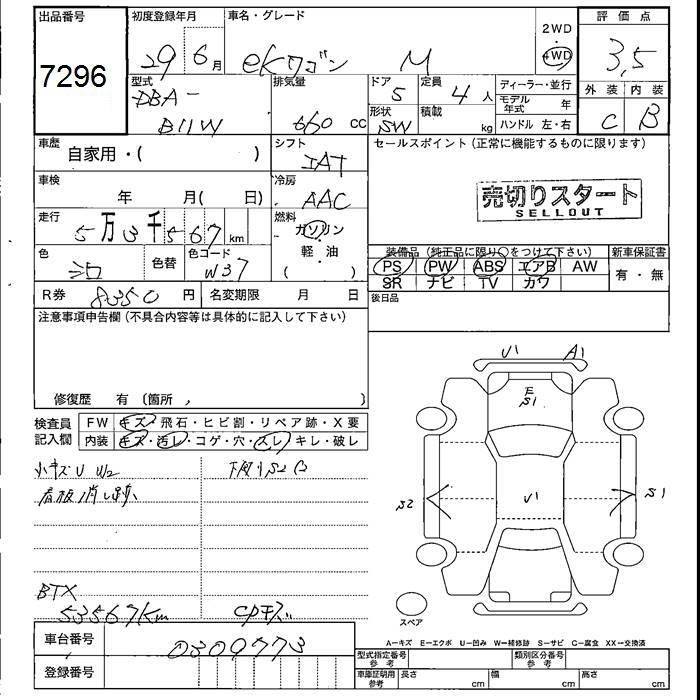 出品番号
7296
初度登録年月
29 6月
車名・グレード
eKワゴン M
2WD
4WD
評価点
3.5
外装 内装
C B
型式
DBA-
B11W
排気量
660 cc
ドア
5
形状
SW
定員
4人
積載
kg
ディーラー・並行
モデル年式 年
ハンドル 左・右
車歴
自家用・( )
シフト
IAT
セールスポイント(正常に機能するものに限ります)
売切りスタート
SELLOUT
車検
年 月( 日)
冷房
AAC
走行
5万3千567km
燃料
ガソリン
軽・油
( )
色
色替
色コード
W37
装備品(純正品に限り○をつけて下さい)
PS PW ABS エアB AW
SR ナビ TV カワ
新車保証書
有・無
R券 8350円
名変期限 月 日
後日品
注意事項申告欄(不具合内容等は具体的に記入して下さい)
修復歴 有(箇所, )
検査員
記入欄
FW キズ・飛石・ヒビ割・リペア跡・X要
内装 キズ・汚レ・コゲ・穴・スレ・キレ・破レ
小キズU W2
看板消し跡
下廻りS2 C
BTX
53567Km
CPキズ
U1 A1
E
S1
U1
S2
S1
スペア
A−キズ E−エクボ U−凹み W−補修跡 S−サビ C−腐食 XX−交換済
車台番号
0309773
登録番号
型式指定番号
参考
類別区分番号
参考
車庫証明用
参考
長さ cm
幅 cm
高さ cm